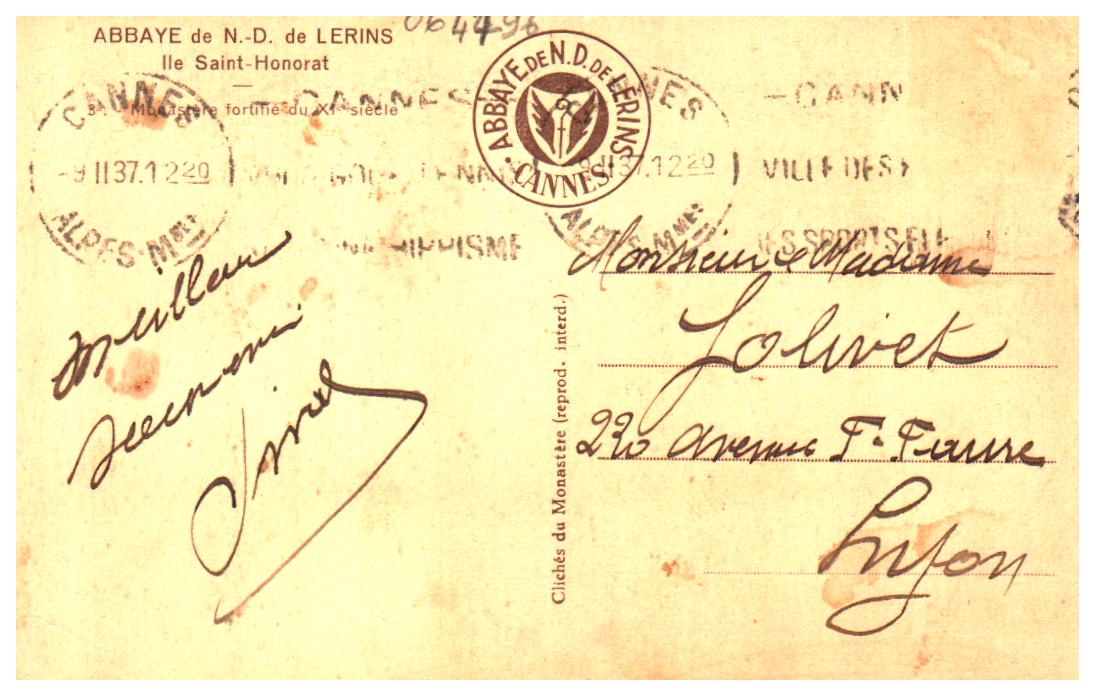 064496
ABBAYE de N.-D. de LERINS
Ile Saint-Honorat
Monastère fortifié du XIe siècle
ABBAYE DE N.D. DE LÉRINS
• CANNES •
CANNES
-9 II 37.12 20
ALPES-Mmes
CANNES
HIPPISME
NES
9 II 37.12 20
ALPES-Mmes
-CANN
VILLE DES
LES SPORTS
Meilleur
souvenir
Monsieur & Madame
Jolivet
230 Avenue F. Faure
Lyon
Clichés du Monastère (reprod. interd.)